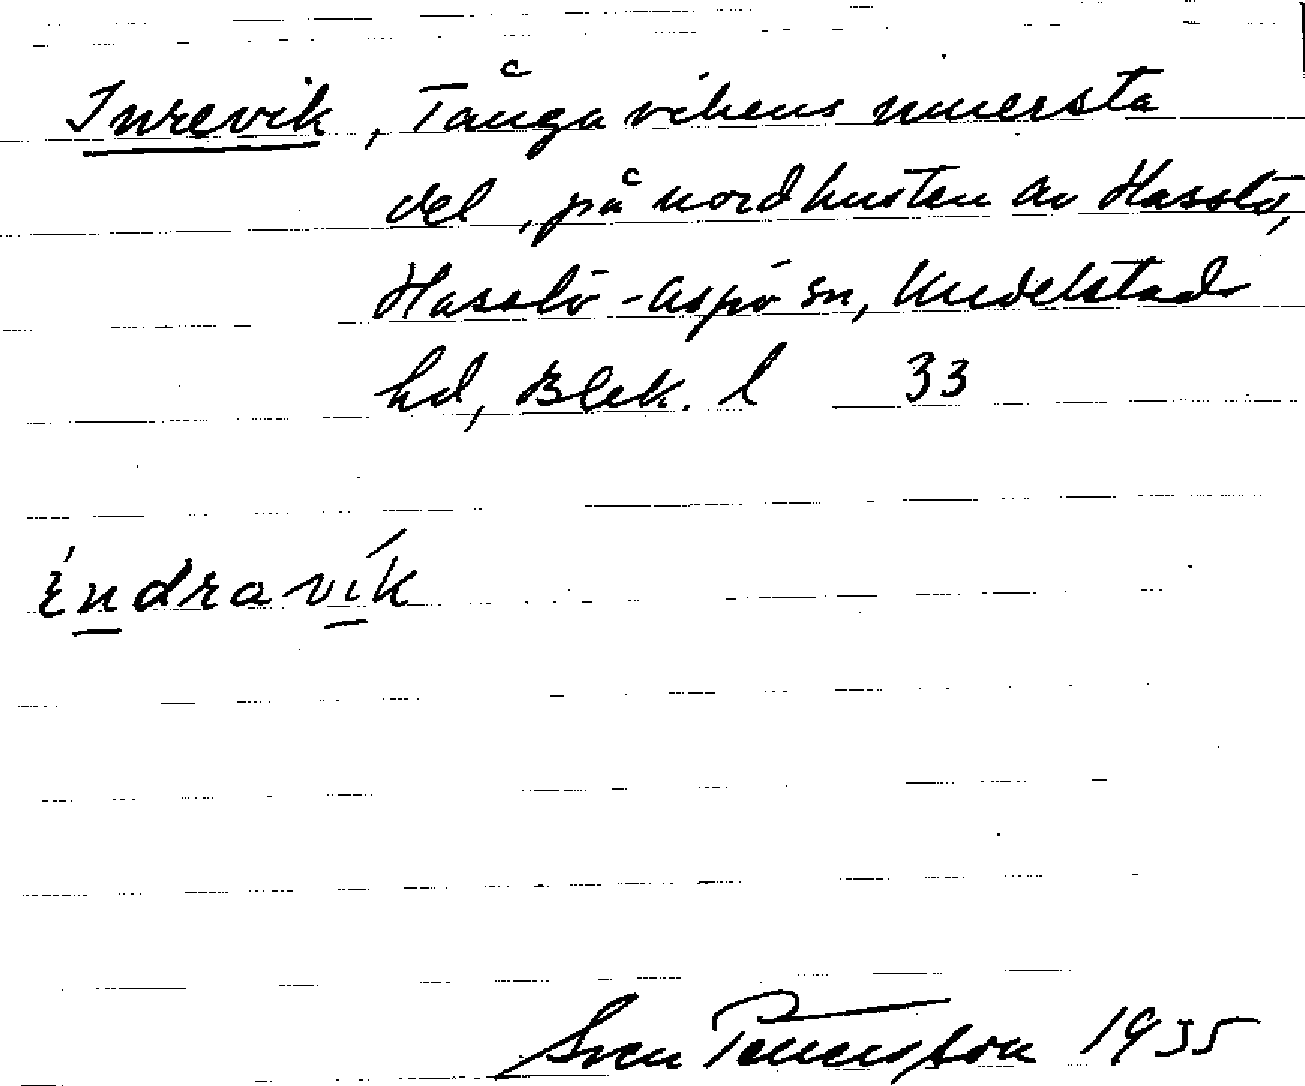 Inrevik, Tångavikens innersta
del, på nordkusten av Hasslö,
Hasslö-Aspö sn, Medelstad
hd, Blek. l 33
éndravík
Sven Pettersson 1935